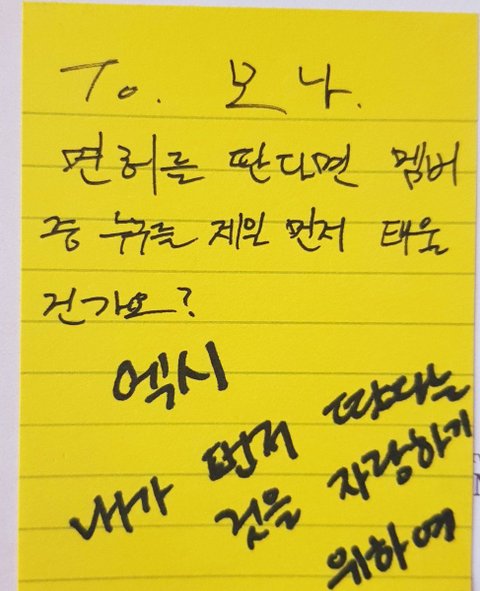 To. 보나.
면허를 딴다면 멤버
중 누구를 제일 먼저 태울
건가요?
엑시
내가 먼저 땄다는
것을 자랑하기
위하여